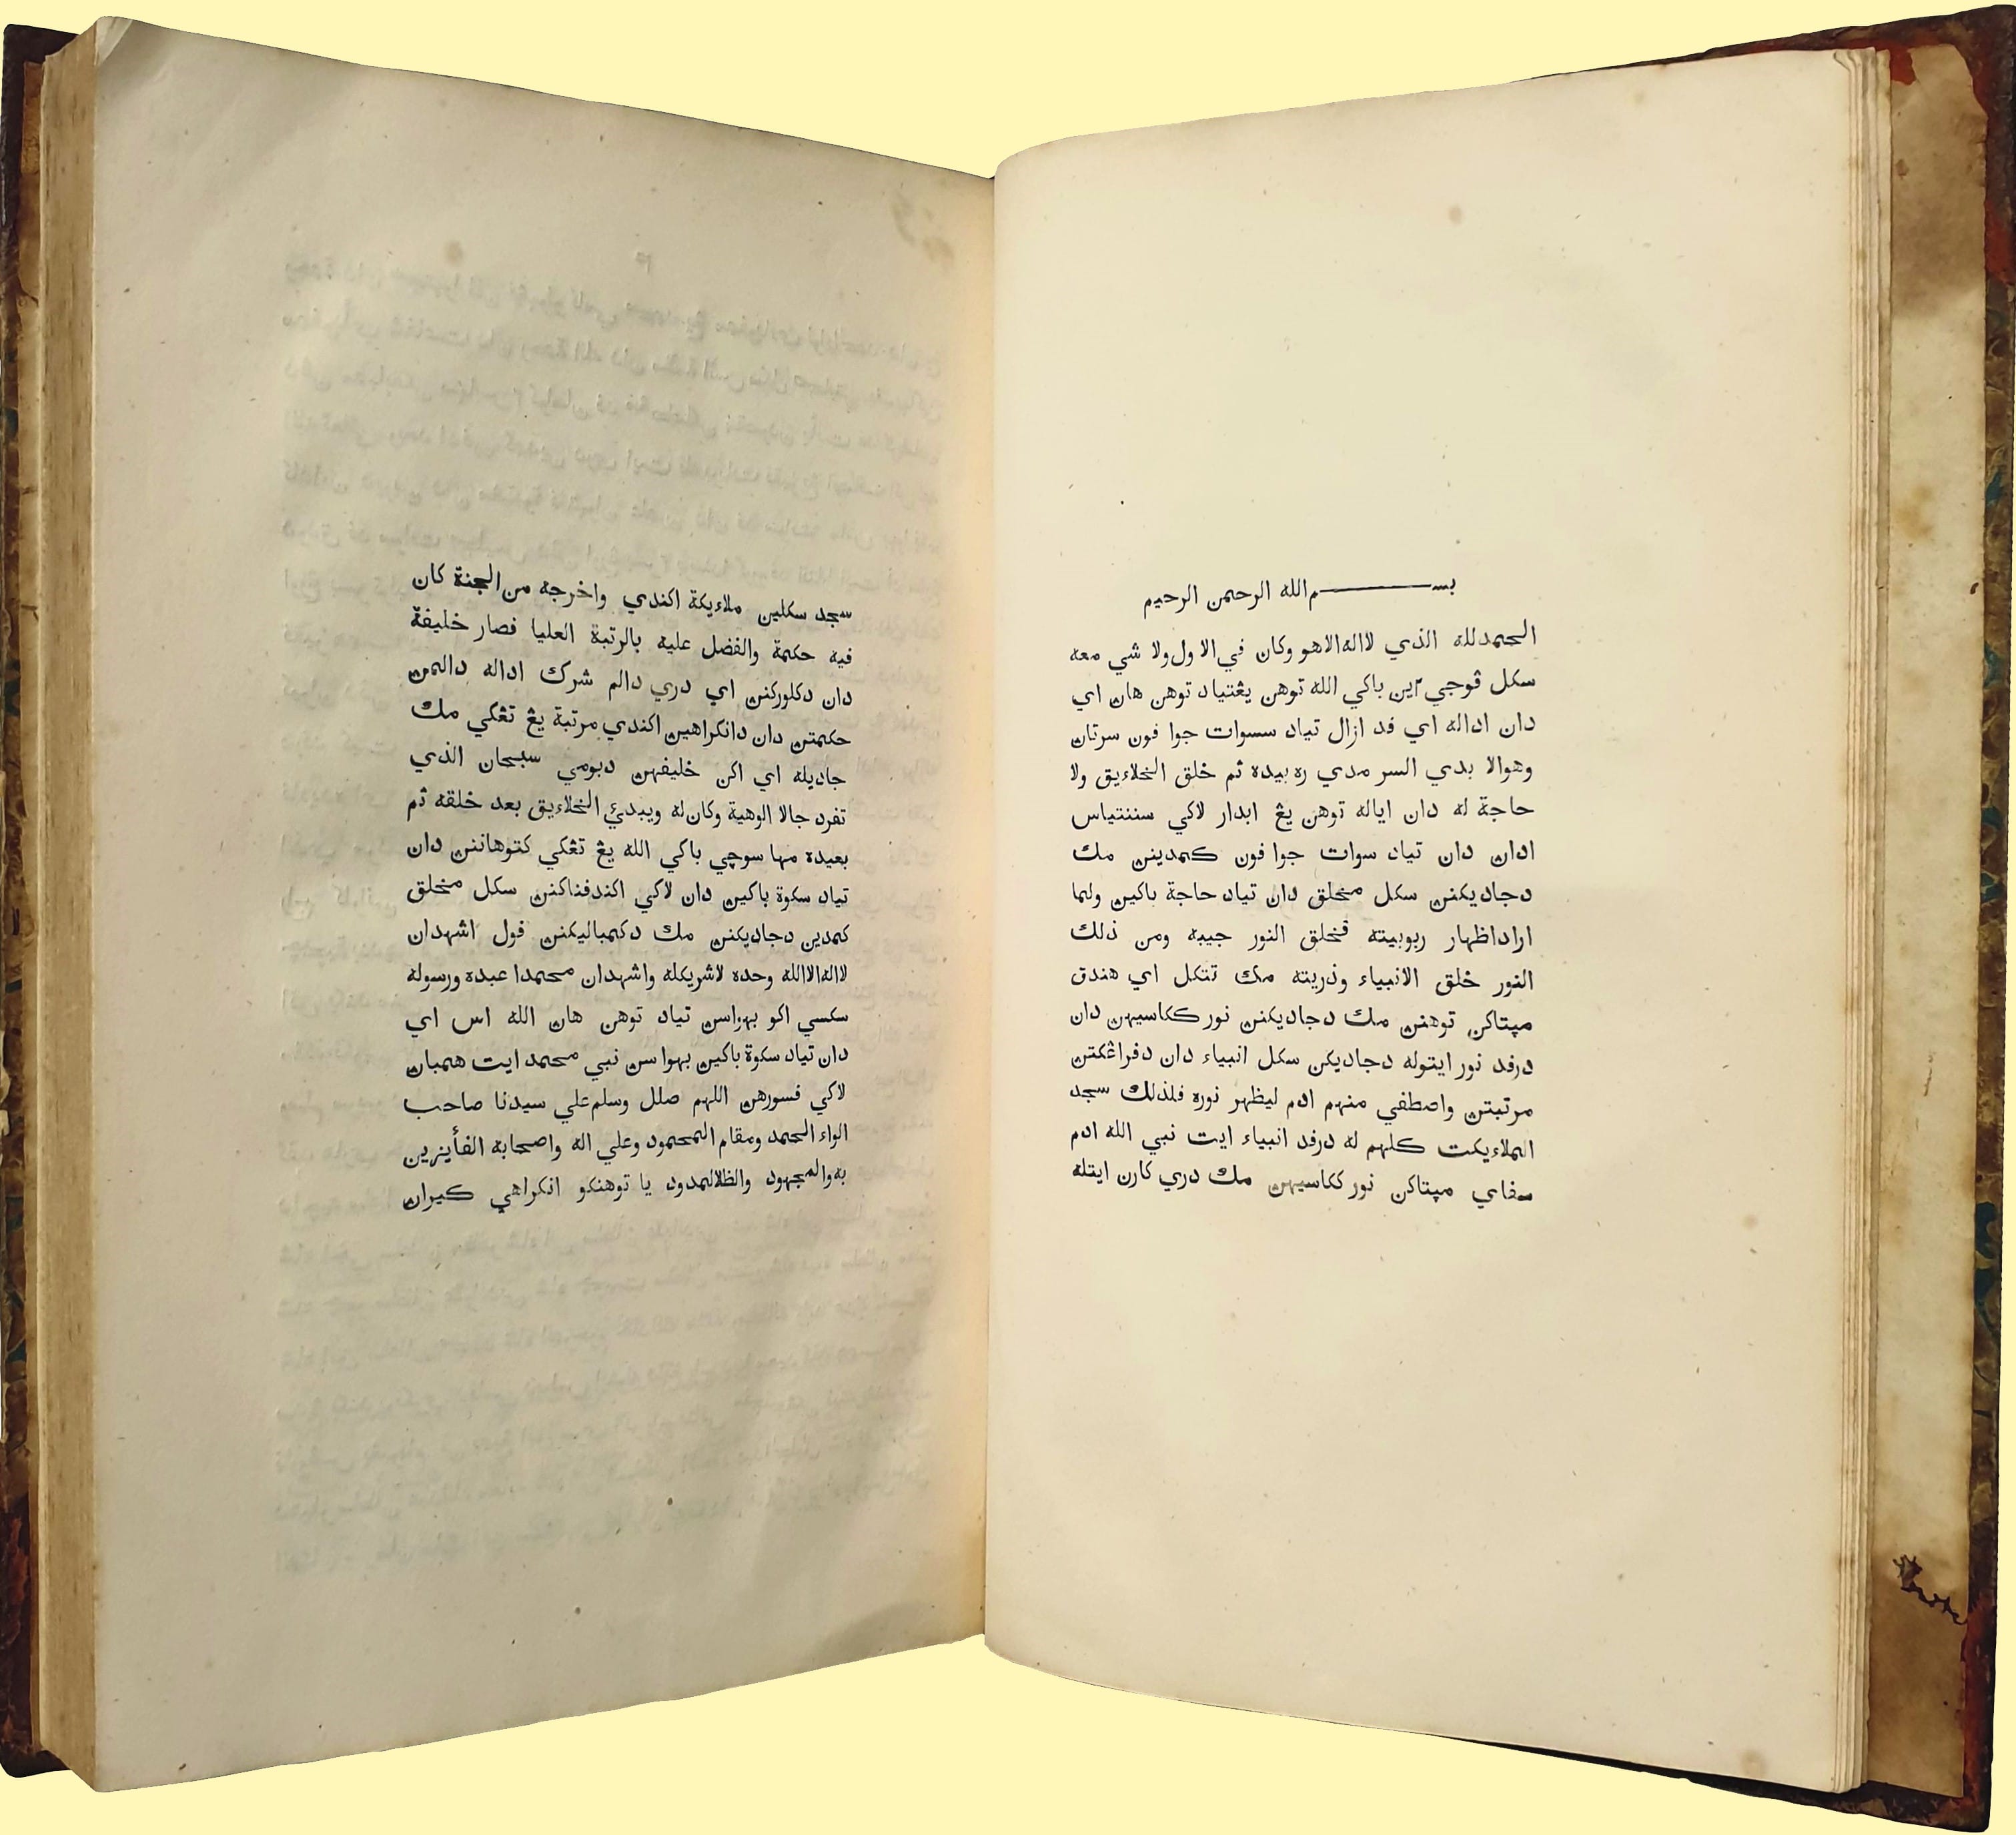 بســــــــم الله الرحمن الرحيم
الحمدلله الذي لااله الاهو وكان في الاول ولا شي معه
سكل ڤوجي٢ين باكي الله توهن يڠتياد توهن هان اي
دان اداله اي فد ازال تياد سسوات جوا فون سرتان
وهوالا بدي السر مدي ره بيده ثم خلق الخلاءيق ولا
حاجة له دان اياله توهن يڠ ابدار لاكي سننتياس
ادان دان تياد سوات جوا فون كمدينن مك
دجاديكنن سكل مخلق دان تياد حاجة باكين ولما
اراداظهار ربوبيته فخلق النور جيبه ومن ذلك
النور خلق الانبياء وذريته مك تتكل اي هندق
مپتاكن توهنن مك دجاديكنن نور ككاسيهن دان
درفد نور ايتوله دجاديكن سكل انبياء دان دفراڠكتن
مرتبتن واصطفي منهم ادم ليظهر نوره فلذلك سجد
الملاءيكت كلهم له درفد انبياء ايت نبي الله ادم
سفاي مپتاكن نور ككاسيهن مك دري كارن ايتله
سجد سكلين ملاءيكة اكندي واخرجه من الجنة كان
فيه حكمة والفضل عليه بالرتبة العليا فصار خليفة
دان دكلوركنن اي دري دالم شرك اداله دالمن
حكمتن دان دانكراهين اكندي مرتبة يڠ تڠكي مك
جاديله اي اكن خليفهن دبومي سبحان الذي
تفرد جالا الوهية وكان له ويبدئ الخلاءيق بعد خلقه ثم
بعيده مها سوچي باكي الله يڠ تڠكي كتوهاننن دان
تياد سكوة باكين دان لاكي اكندفناكنن سكل مخلق
كمدين دجاديكنن مك دكمباليكنن فول اشهدان
لااله الاالله وحده لاشريكله واشهدان محمدا عبده ورسوله
سكسي اكو بهواسن تياد توهن هان الله اس اي
دان تياد سكوة باكين بهواسن نبي محمد ايت همبان
لاكي فسورهن اللهم صلل وسلم علي سيدنا صاحب
الواء الحمد ومقام المحمود وعلي اله واصحابه الفأيزين
به والمجهود والظلالمدود يا توهنكو انكراهي كيران